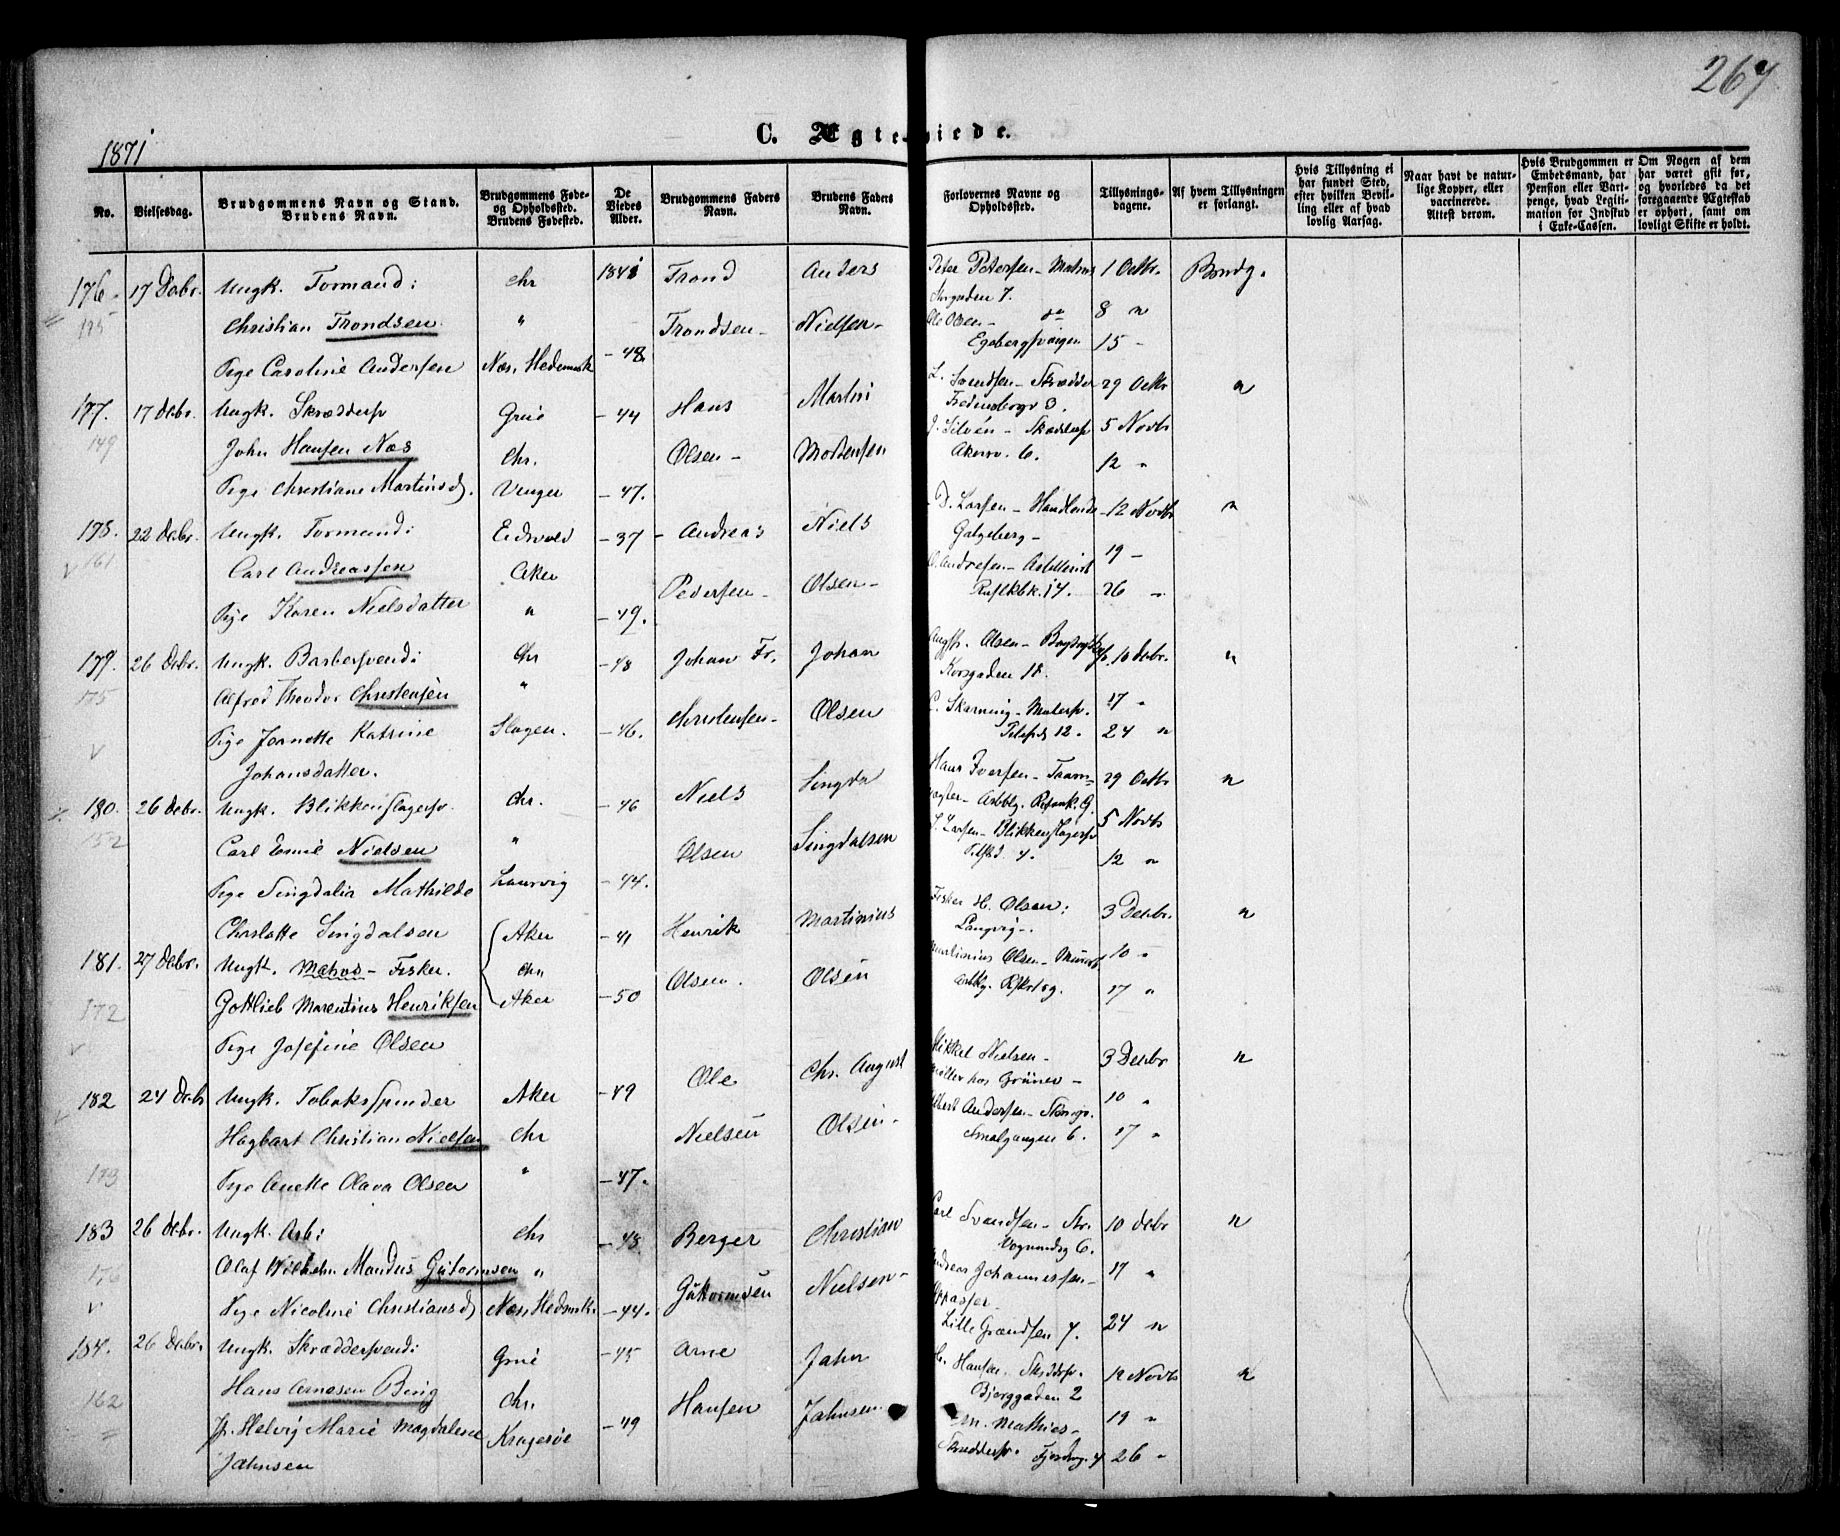 267
C. Ægteviede.
1871
No.
Vielsesdag.
Brudgommens Navn og Stand. Brudens Navn.
Brudgommens Føde- og Opholdssted. Brudens Fødested.
De Viedes Alder.
Brudgommens Faders Navn.
Brudens Faders Navn.
Forlovernes Navne og Opholdssted.
Tillysnings-dagene.
Af hvem Tillysningen er forlangt.
Hvis Tillysning ei har fundet Sted, efter hvilken Bevilling eller af hvad lovlig Aarsag.
Naar havt de naturlige Kopper, eller vaccinerede. Attest derom.
Hvis Brudgommen er Embedsmand, har Pension eller Vartpenge, hvad Legitimation for Indskud i Enke-Cassen.
Om Nogen af dem har været gift før, og hvorledes da det foregaaende Ægteskab er ophørt, samt om lovligt Skifte er holdt.
176. 17 Debr. Ungk. Tormand: Chr 1841 Trond Anders Peter Petersen - 1 Octbr. Brudg.
175 Christian Trondsen " Trondsen - Nielsen - 7. Ole Olsen - do 8 "
Pige Caroline Andersen Næs, Hedemark - 48 Egebergsveien 15 -
177. 17 Debr. Ungk. Skrædersv Grue - 44 Hans Martin L. Svendsen - Skrædder 29 Octbr "
149 John Hansen Næs Chr. Olsen - Mortensen 3. J. Silvén - Skrædersv 5 Novbr
Pige Christiane Martinsd. Unger - 47. Akersv. 6. 12 "
178. 22 Debr. Ungk. Tormand: Eidsvold - 37 Andreas Niels D. Larsen - Handlende 12 Novbr "
161 Carl Andreassen Aker Pedersen - Olsen - Galgeberg - 19 -
v Pige Karen Nielsdatter " - 49. O. Andresen - Artillerist 14. 26 "
179. 26 Debr. Ungk. Barbersvend: Chr - 48 Johan Fr. Johan Olsen - 10 Debr. "
175 Alfred Theodor Christensen " Christensen - Olsen Korsgaden 18. 17 "
v Pige Jeanette Katrine Slagen. - 46. C. Skarning - Malersv. 12. 24 "
Johansdatter.
180. 26 Debr. Ungk. Blikkenslagersv. Chr. - 46 Niels Singdal Hans Iversen - 29 Octbr "
152 Carl Emil Nielsen " Olsen Singdalsen Larsen - Blikkenslagersv 5 Novbr
Pige Singdalia Mathilde Laurvig - 44. 12 "
Charlotte Singdalsen
181. 27 Debr. Ungk. Matros - Fisker. Aker - 41 Henrik Martinius Fisker H. Olsen: 3 Debr. "
172 Gottlieb Marentius Henriksen Chr. Olsen. Olsen Langvig -. Martinius Olsen - 10 "
v Pige Josefine Olsen Aker - 50 17 "
182 24 Debr Ungk. Tobaksspinder Aker - 49 Ole Chr. August Mikkel Nielsen - 3 Debr "
v Hagbart Christian Nielsen Chr Nielsen Olsen - Møller hos Grüner - 10 "
173 Pige Anette Olava Olsen " - 47. Albert Andersen - Smalgangen 6. 17 "
183 26 Debr. Ungk. Arb: Chr - 48 Berger Christian Carl Svendsen - 10 Debr "
176 Olaf Wilhelm Mandus Guttormsen " Guttormsen Nielsen - Vognmdsg 6. Andreas Johannessen - 17 "
v Pige Nicoline Christiansd. Næs, Hedmrk. - 44. Lille Grændsen 7. 24 "
184. 26 Debr. Ungk. Skræddersvend: Grue - 45 Arne Jahn Hansen. Skrddrsv. 12 Novbr "
162 Hans Arnesen Berg Chr. Hansen Jahnsen. Bjerggaden 2 19 "
P. Helvig Marie Magdalene Kragerøe - 49 M. Mathies - Skræddersv. 26 "
Jahnsen